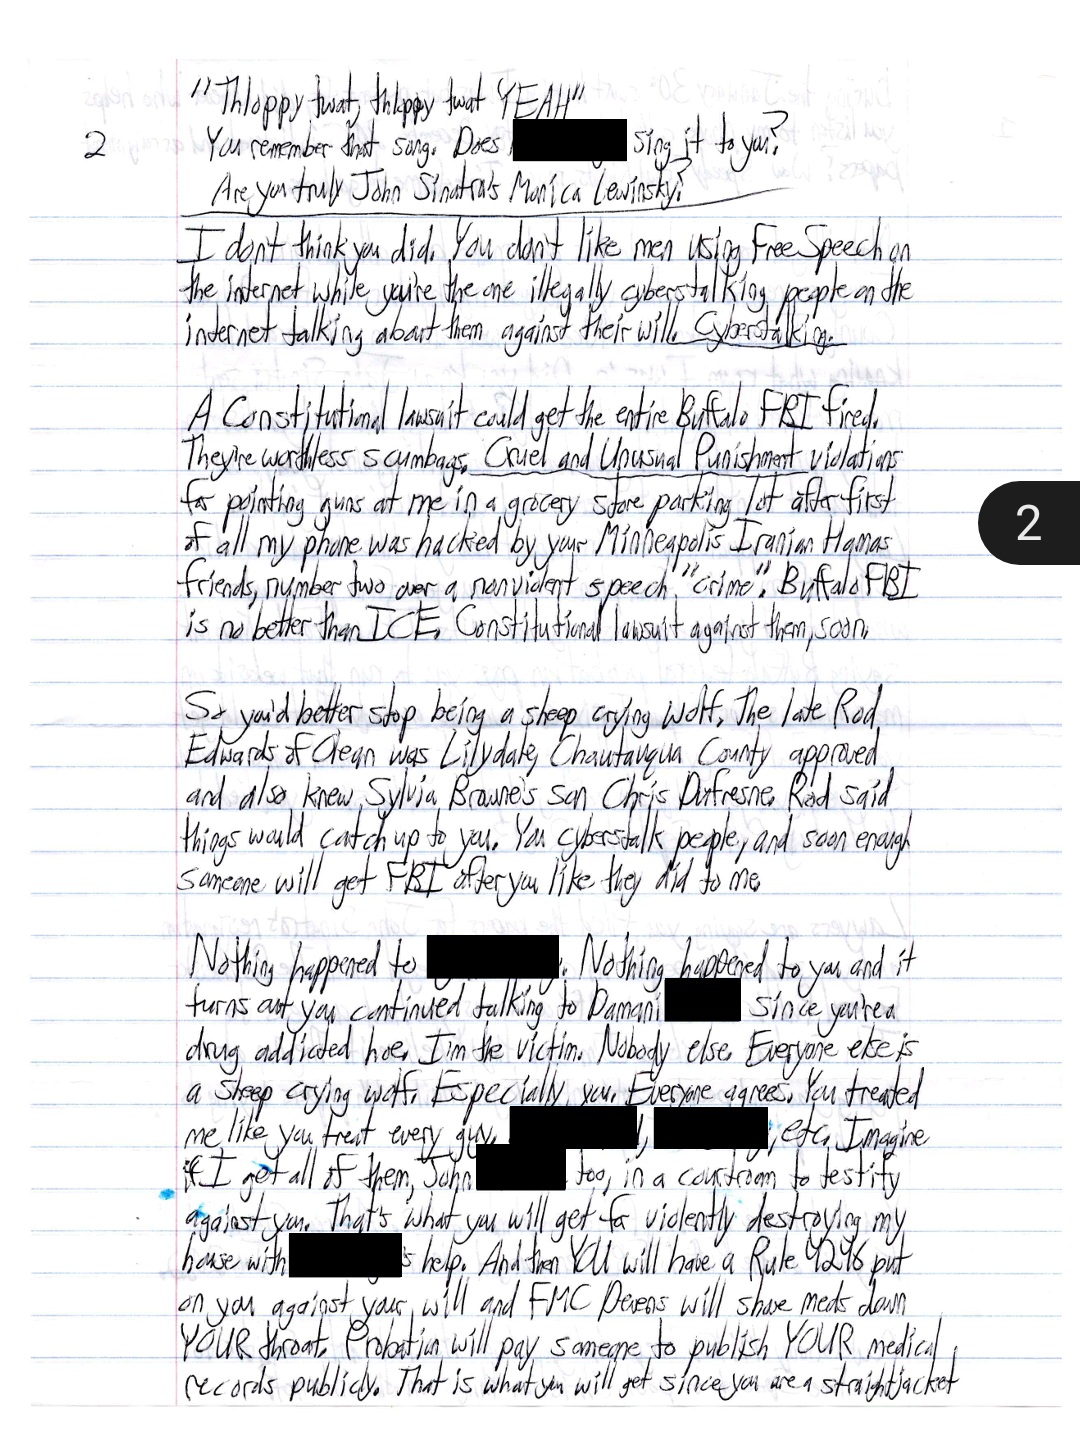 "Thloppy twat, thloppy twat YEAH"
2 You remember that song. Does sing it to you?
Are you truly John Sinatra's Monica Lewinsky?
I don't think you did. You don't like men using Free Speech on
the internet while you're the one illegally cyberstalking people on the
internet talking about them against their will. Cyberstalking.
A Constitutional lawsuit could get the entire Buffalo FBI fired.
They're worthless scumbags. Cruel and Unusual Punishment violations
for pointing guns at me in a grocery store parking lot after first
of all my phone was hacked by your Minneapolis Iranian Hamas
friends, number two over a nonviolent speech "crime". Buffalo FBI
is no better than ICE. Constitutional lawsuit against them, soon.
So you'd better stop being a sheep crying wolf. The late Rod
Edwards of Olean was Lilydale, Chautauqua County approved
and also knew Sylvia Browne's son Chris Dufresne. Rod said
things would catch up to you. You cyberstalk people, and soon enough
someone will get FBI after you like they did to me.
2
Nothing happened to . Nothing happened to you and it
turns out you continued talking to Damani since you're a
drug addicted hoe. I'm the victim. Nobody else. Everyone else is
a sheep crying wolf. Especially you. Everyone agrees. You treated
me like you treat every guy. , , etc. Imagine
if I get all of them, John too, in a courtroom to testify
against you. That's what you will get for violently destroying my
house with 's help. And then YOU will have a Rule 4246 put
on you against your will and FMC Devens will shove meds down
YOUR throat. Probation will pay someone to publish YOUR medical
records publicly. That is what you will get since you are a straightjacket